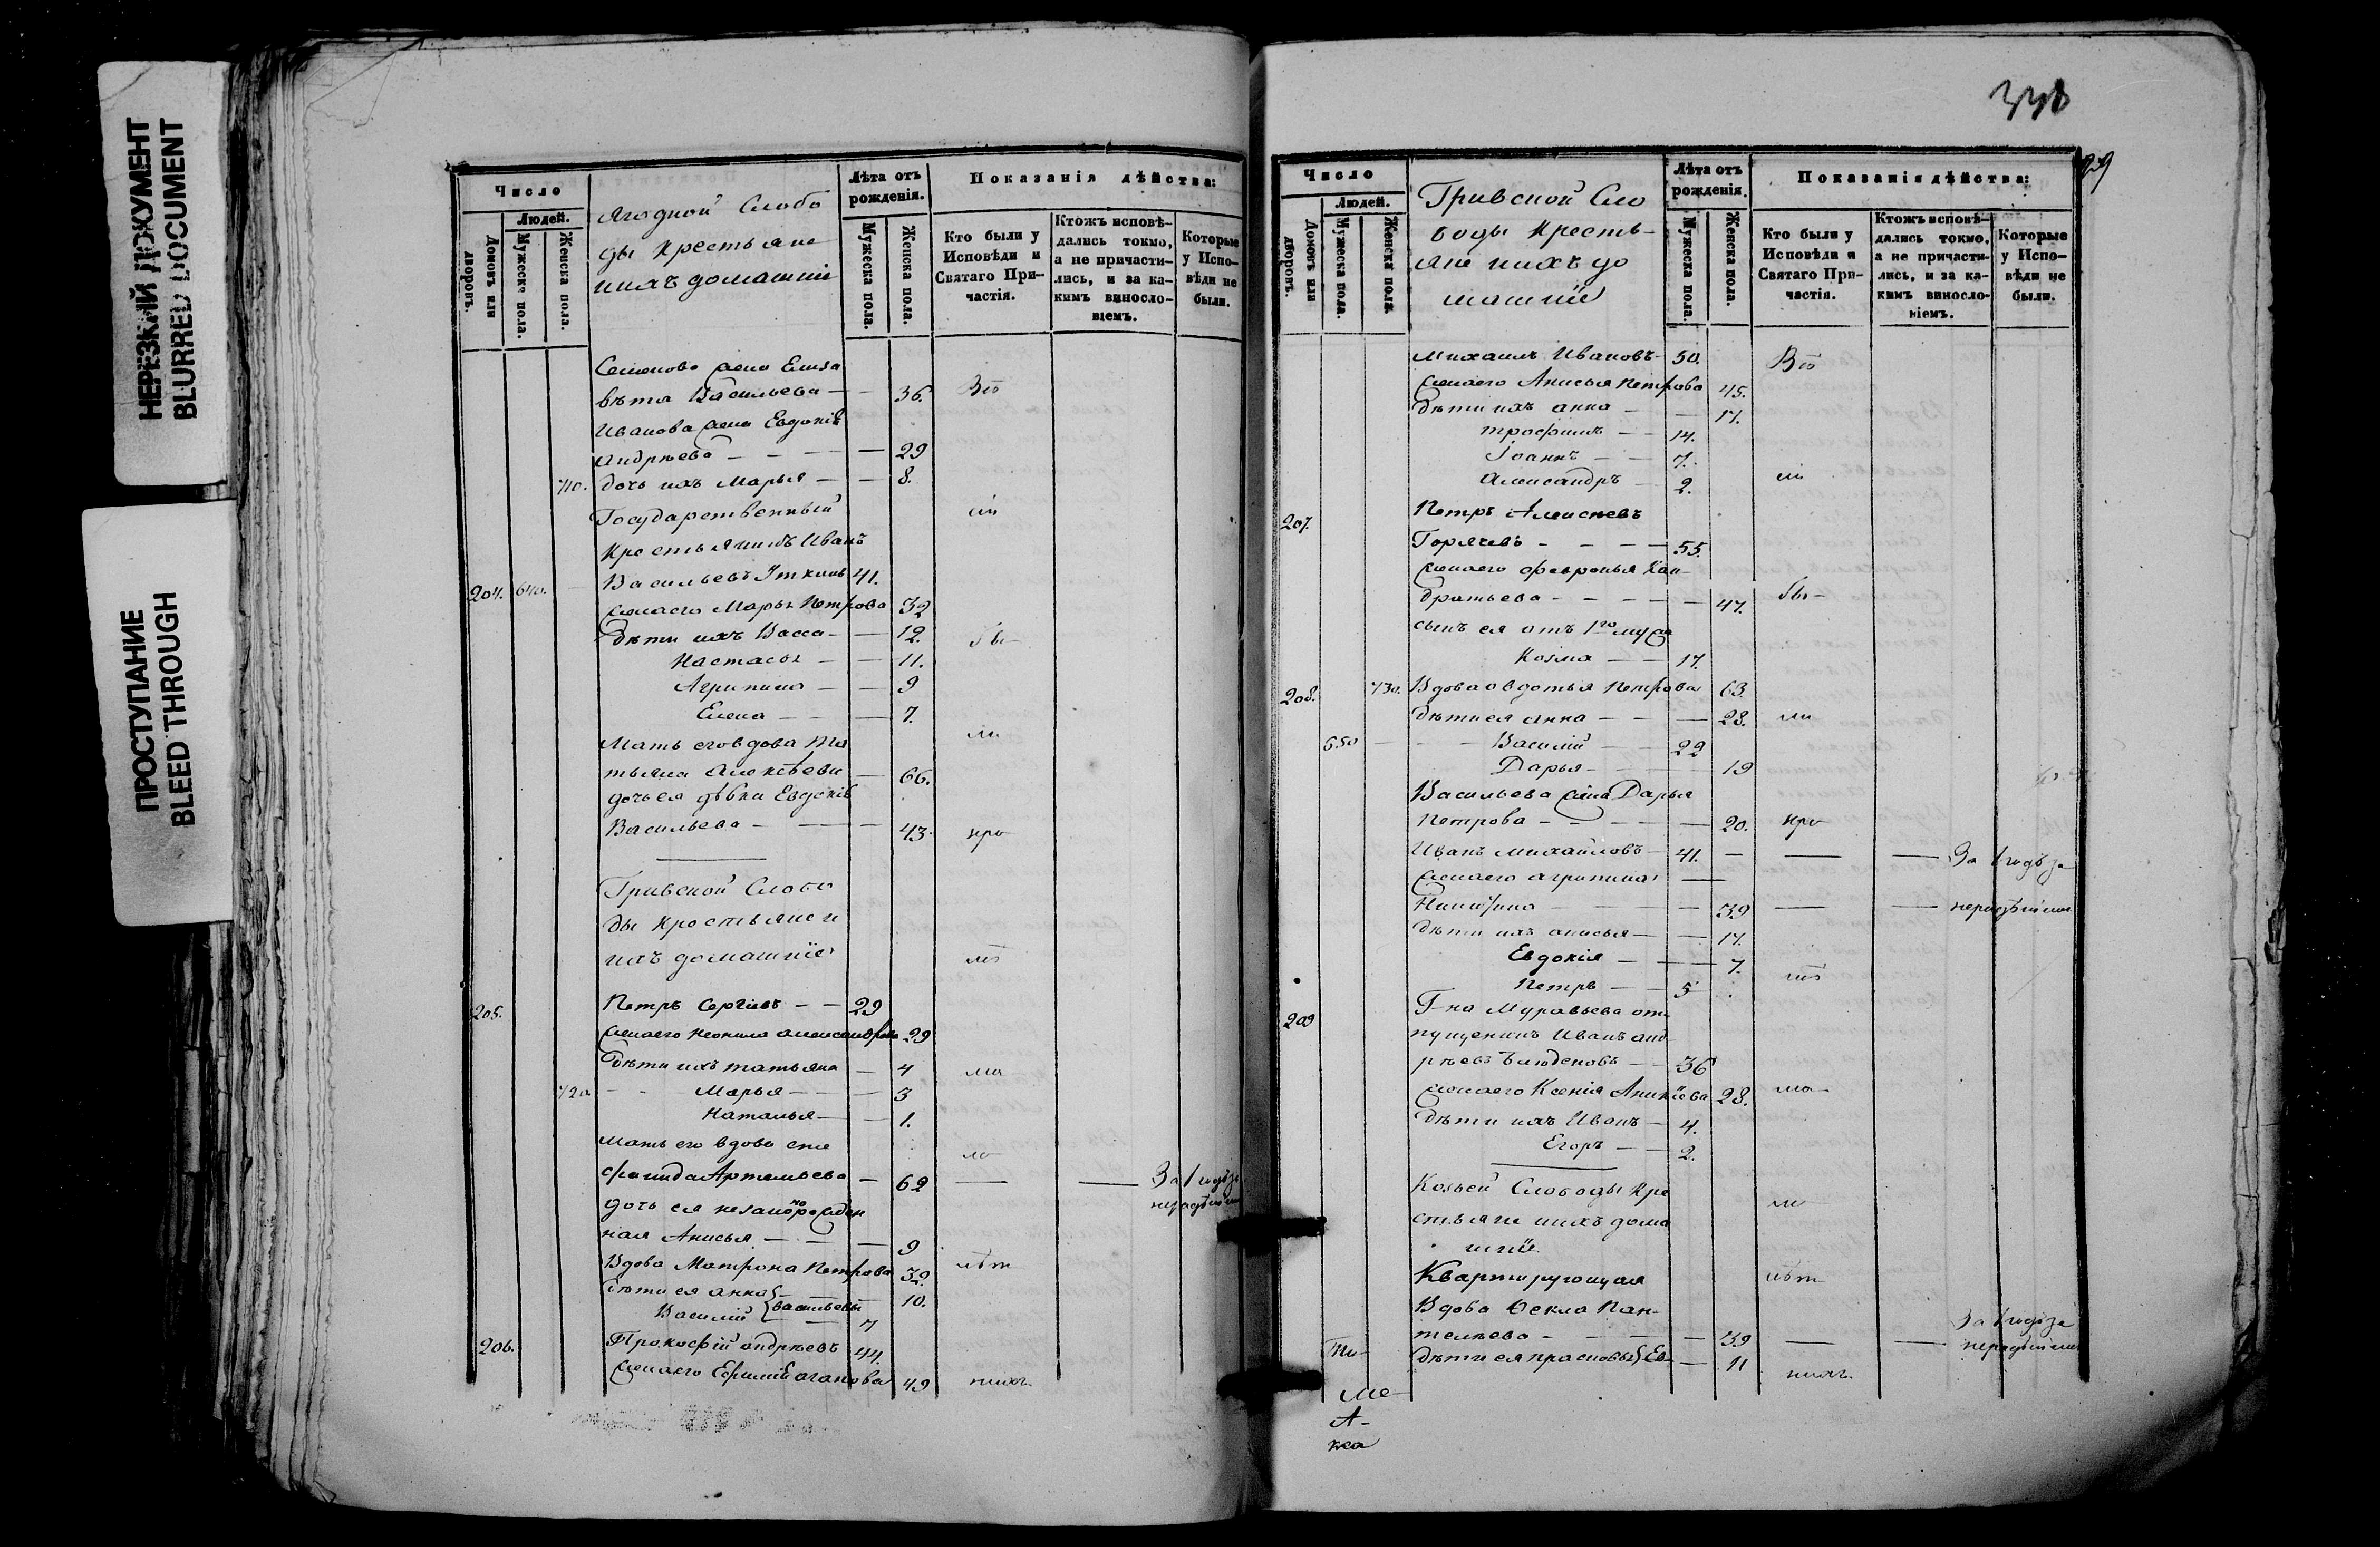 НЕРЕЗКИЙ ДОКУМЕНТ
BLURRED DOCUMENT
ПРОСТУПАНИЕ
BLEED THROUGH
Число
Людей.
Домовъ или дворовъ.
Мужеска пола.
Женска пола.
Ягодной Слобо
ды крестьяне
ихъ домашніе
Лѣта отъ рожденія.
Мужеска пола.
Женска пола.
Показанія дѣйства:
Кто были у Исповѣди и Святаго Причастія.
Ктожъ исповѣ-
дались токмо,
а не причасти-
лись, и за ка-
кимъ винosло-
віемъ.
Которые
у Испо-
вѣди не
были.
Семенова жена Елиза
вѣта Васильева — 36. Въ
Иванова жена Евдокія
Андрѣева — — — 29
710. дочь ихъ Марья — — 8.
Государственный
крестьянинъ Иванъ
204. 640. Васильевъ Уткинъ 41.
жена его Марья Петрова 32
дѣти ихъ Васса — — 12. бы
Настасья — — 11.
Агрипина — — 9
Елена — — 7.
Мать его вдова Та
тьяна Алексѣева — 66. ли
дочь ея дѣвка Евдокія
Васильева — — — 43. при
Гривской Слобо
ды крестьяне и
ихъ домашніе
205. Петръ Сергѣевъ — — 29
жена его Неонила Александрова 29
дѣти ихъ Татьяна — 4
720. Марья — — 3
Наталья — — 1.
Мать его вдова сте
фанида Артемьева — 62 — — За 1 годъ за
нерадѣніемъ
дочь ея незаконорожден
ная Анисья — — — 9
Вдова Матрона Петрова 32. лѣт
дѣти ея Анна — 10.
Василій } Васильевы 7
206. Прокофій Андрѣевъ 44.
жена его Ефимія Агапова 49 нихъ.
338
239
Число
Людей.
Домовъ или дворовъ.
Мужеска пола.
Женска пола.
Гривской Сло
боды кресть-
яне ихъ до
машніе
Лѣта отъ рожденія.
Мужеска пола.
Женска пола.
Показанія дѣйства:
Кто были у
Исповѣди и
Святаго При-
частія.
Ктожъ исповѣ-
дались токмо,
а не причасти-
лись, и за ка-
кимъ винosло-
віемъ.
Которые
у Испо-
вѣди не
были.
Михаилъ Ивановъ 50. Въ
жена его Анисья Петрова 45.
дѣти ихъ Анна — — 17.
Трофимъ — — 14.
Іоаннъ — — 7.
Александръ — 2.
207. Петръ Алексѣевъ
Горячевъ — — — 55.
жена его Февронья Кон-
дратьева — — — — 47. бы-
сынъ ея отъ 1го мужа
Козма — — 17.
208. 730. Вдова Овдотья Петрова 63.
дѣти ея Анна — — — 28. ли
650 — — Василій — — 22
Дарья — — — 19
Васильева жена Дарья
Петрова — — — — 20. при
Иванъ Михайловъ — 41. — — — За 1 годъ за
жена его Агрипина —
Никитина — — 39 — — нерадѣніемъ
дѣти ихъ Анисья — — 17.
Евдокія — — 7.
Петръ — — 5
209 Г-на Муравьева от-
пущенникъ Иванъ Анд
рѣевъ — 36
жена его Ксенія Аникіева 28.
дѣти ихъ Иванъ — 4.
Егоръ — — 2.
Козьей Слободы кре
стьяне ихъ дома
шніе.
Квартирующая лѣт
Вдова Ѳекла Пан-
телѣева — — — — 39 — — За 1 годъ за
нерадѣніемъ
дѣти ея Прасковья } Ев- — 11 нихъ.